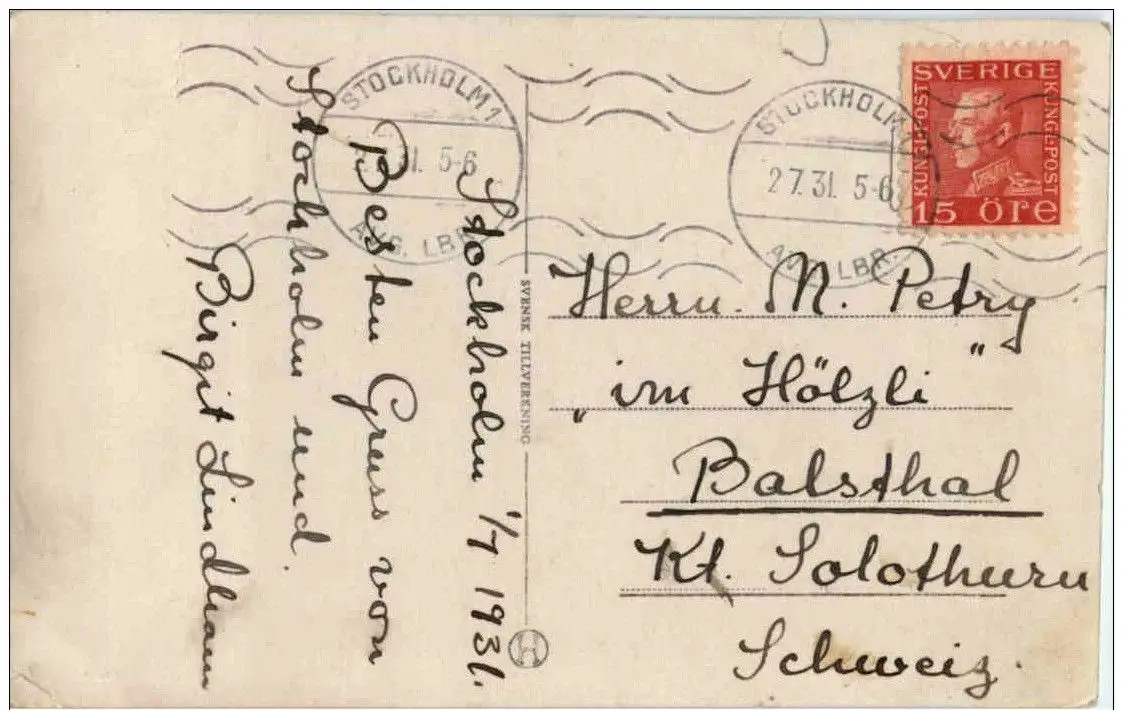 Stockholm 1/7 1931.
Besten Gruss von
Stockholm und
Birgit Lindham
SVENSK TILLVERKNING
H
STOCKHOLM 1
31. 5-6
LBR.
STOCKHOLM
2 7. 31. 5-6
LBR.
SVERIGE
KUNGL. POST
KUNGL. POST
15 ÖRE
Herrn. M. Petry
„im Hölzli"
Balsthal
Kt. Solothurn
Schweiz.